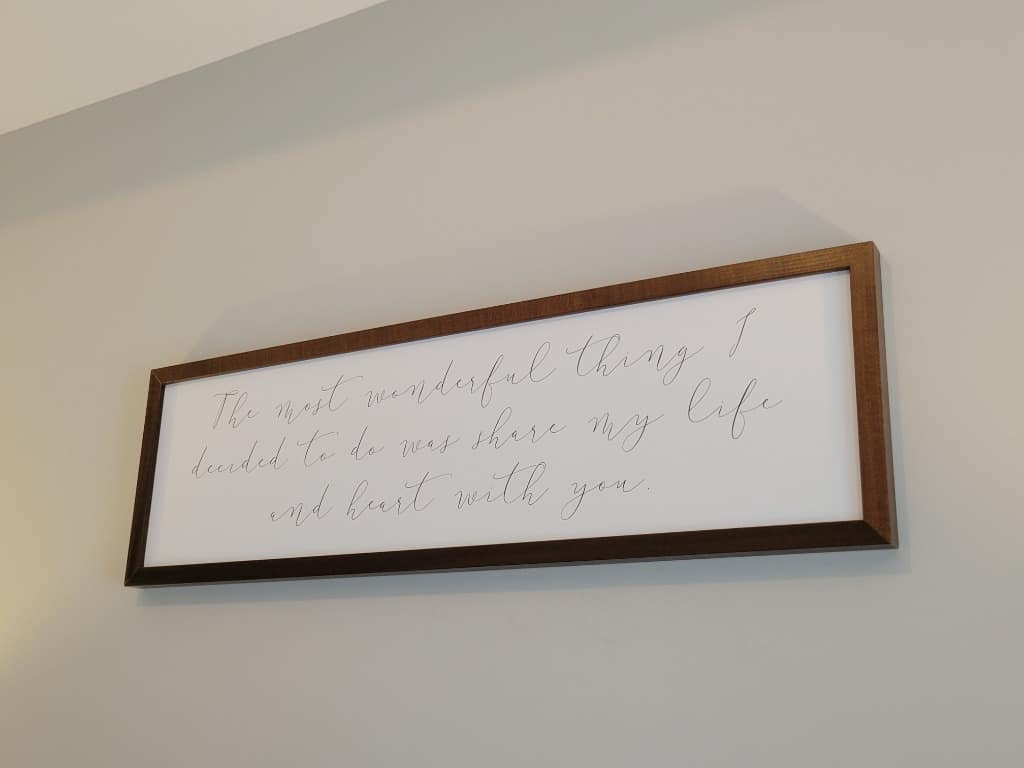 The most wonderful thing I
decided to do was share my life
and heart with you.